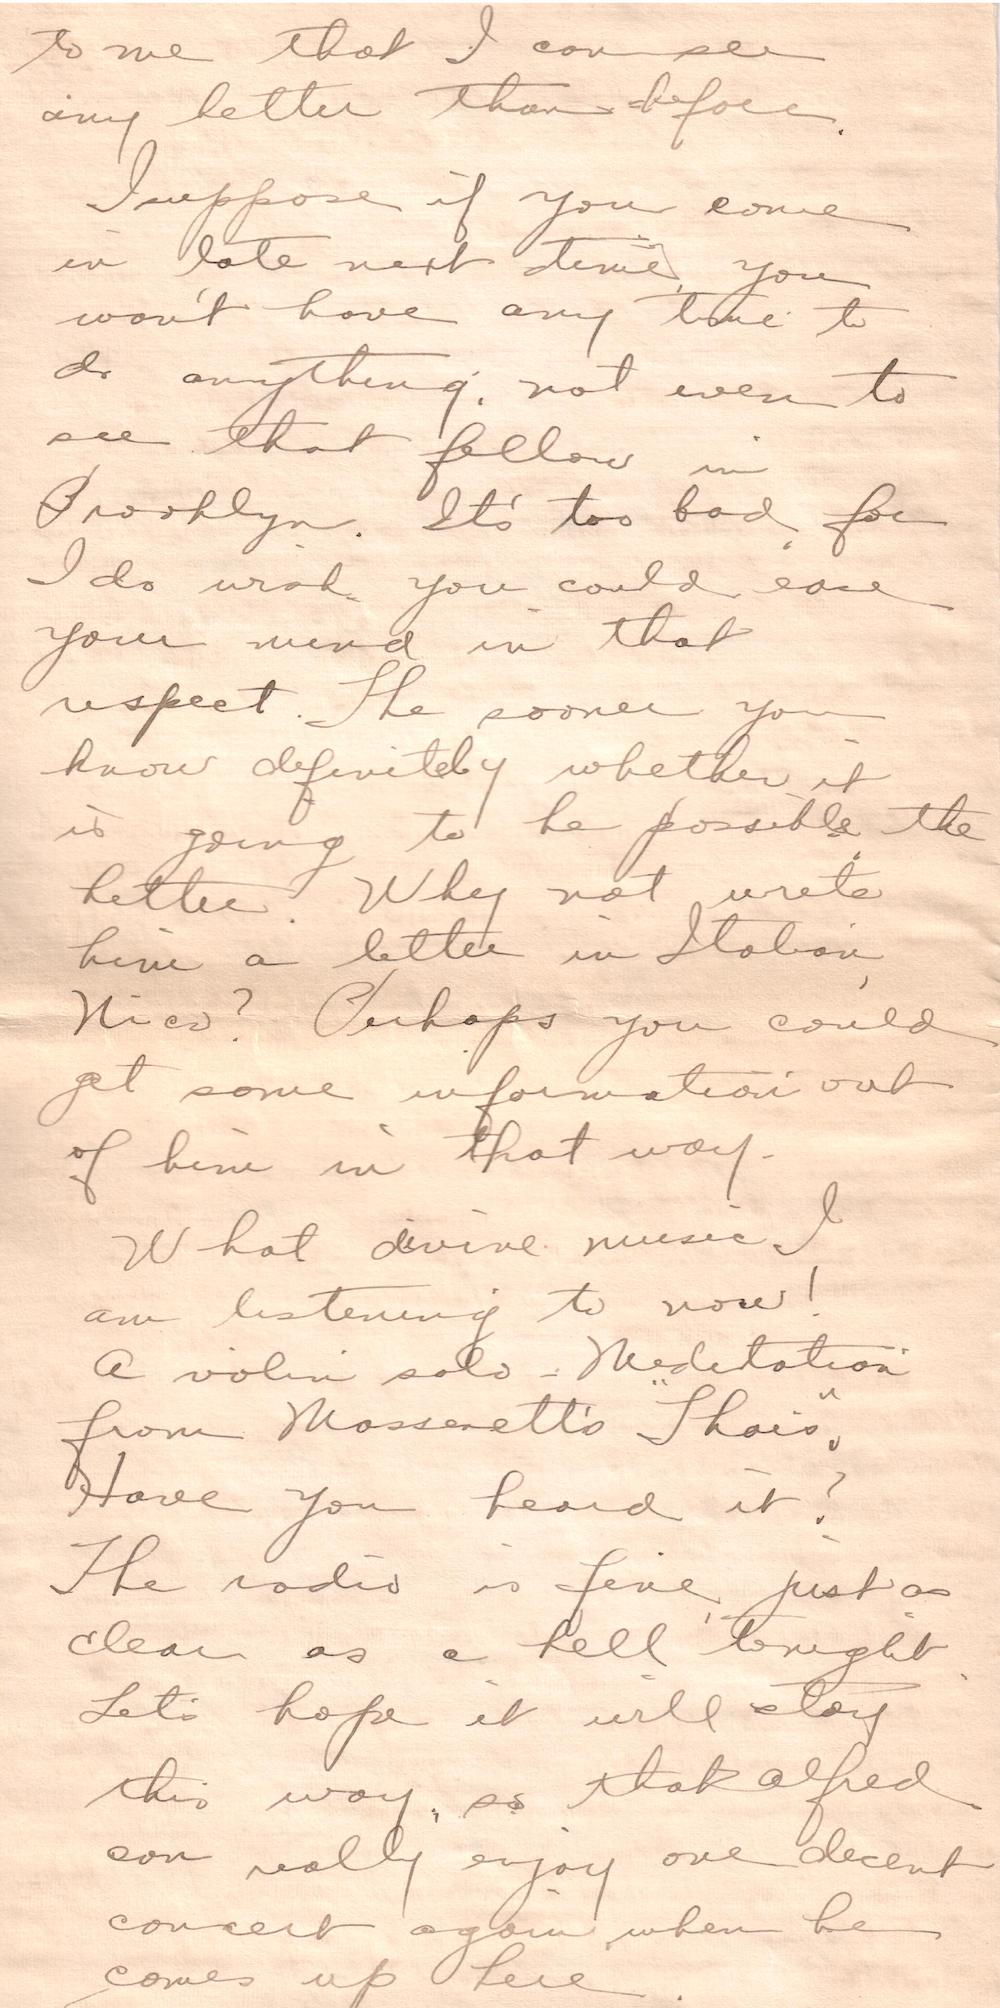 to me that I can see
any better than before.
I suppose if you come
in late next time, you
won't have any time to
do anything, not even to
see that fellow in
Brooklyn. It's too bad, for
I do wish you could ease
your mind in that
respect. The sooner you
know definitely whether it
is going to be possible, the
better. Why not write
him a letter in Italian,
Nico? Perhaps you could
get some information out
of him in that way.
What divine music I
am listening to now!
A violin solo - Meditation
from Massenett's "Thais".
Have you heard it?
The radio is fine, just as
clear as a bell tonight.
Let's hope it will stay
this way, so that Alfred
can really enjoy one decent
concert again when he
comes up here.